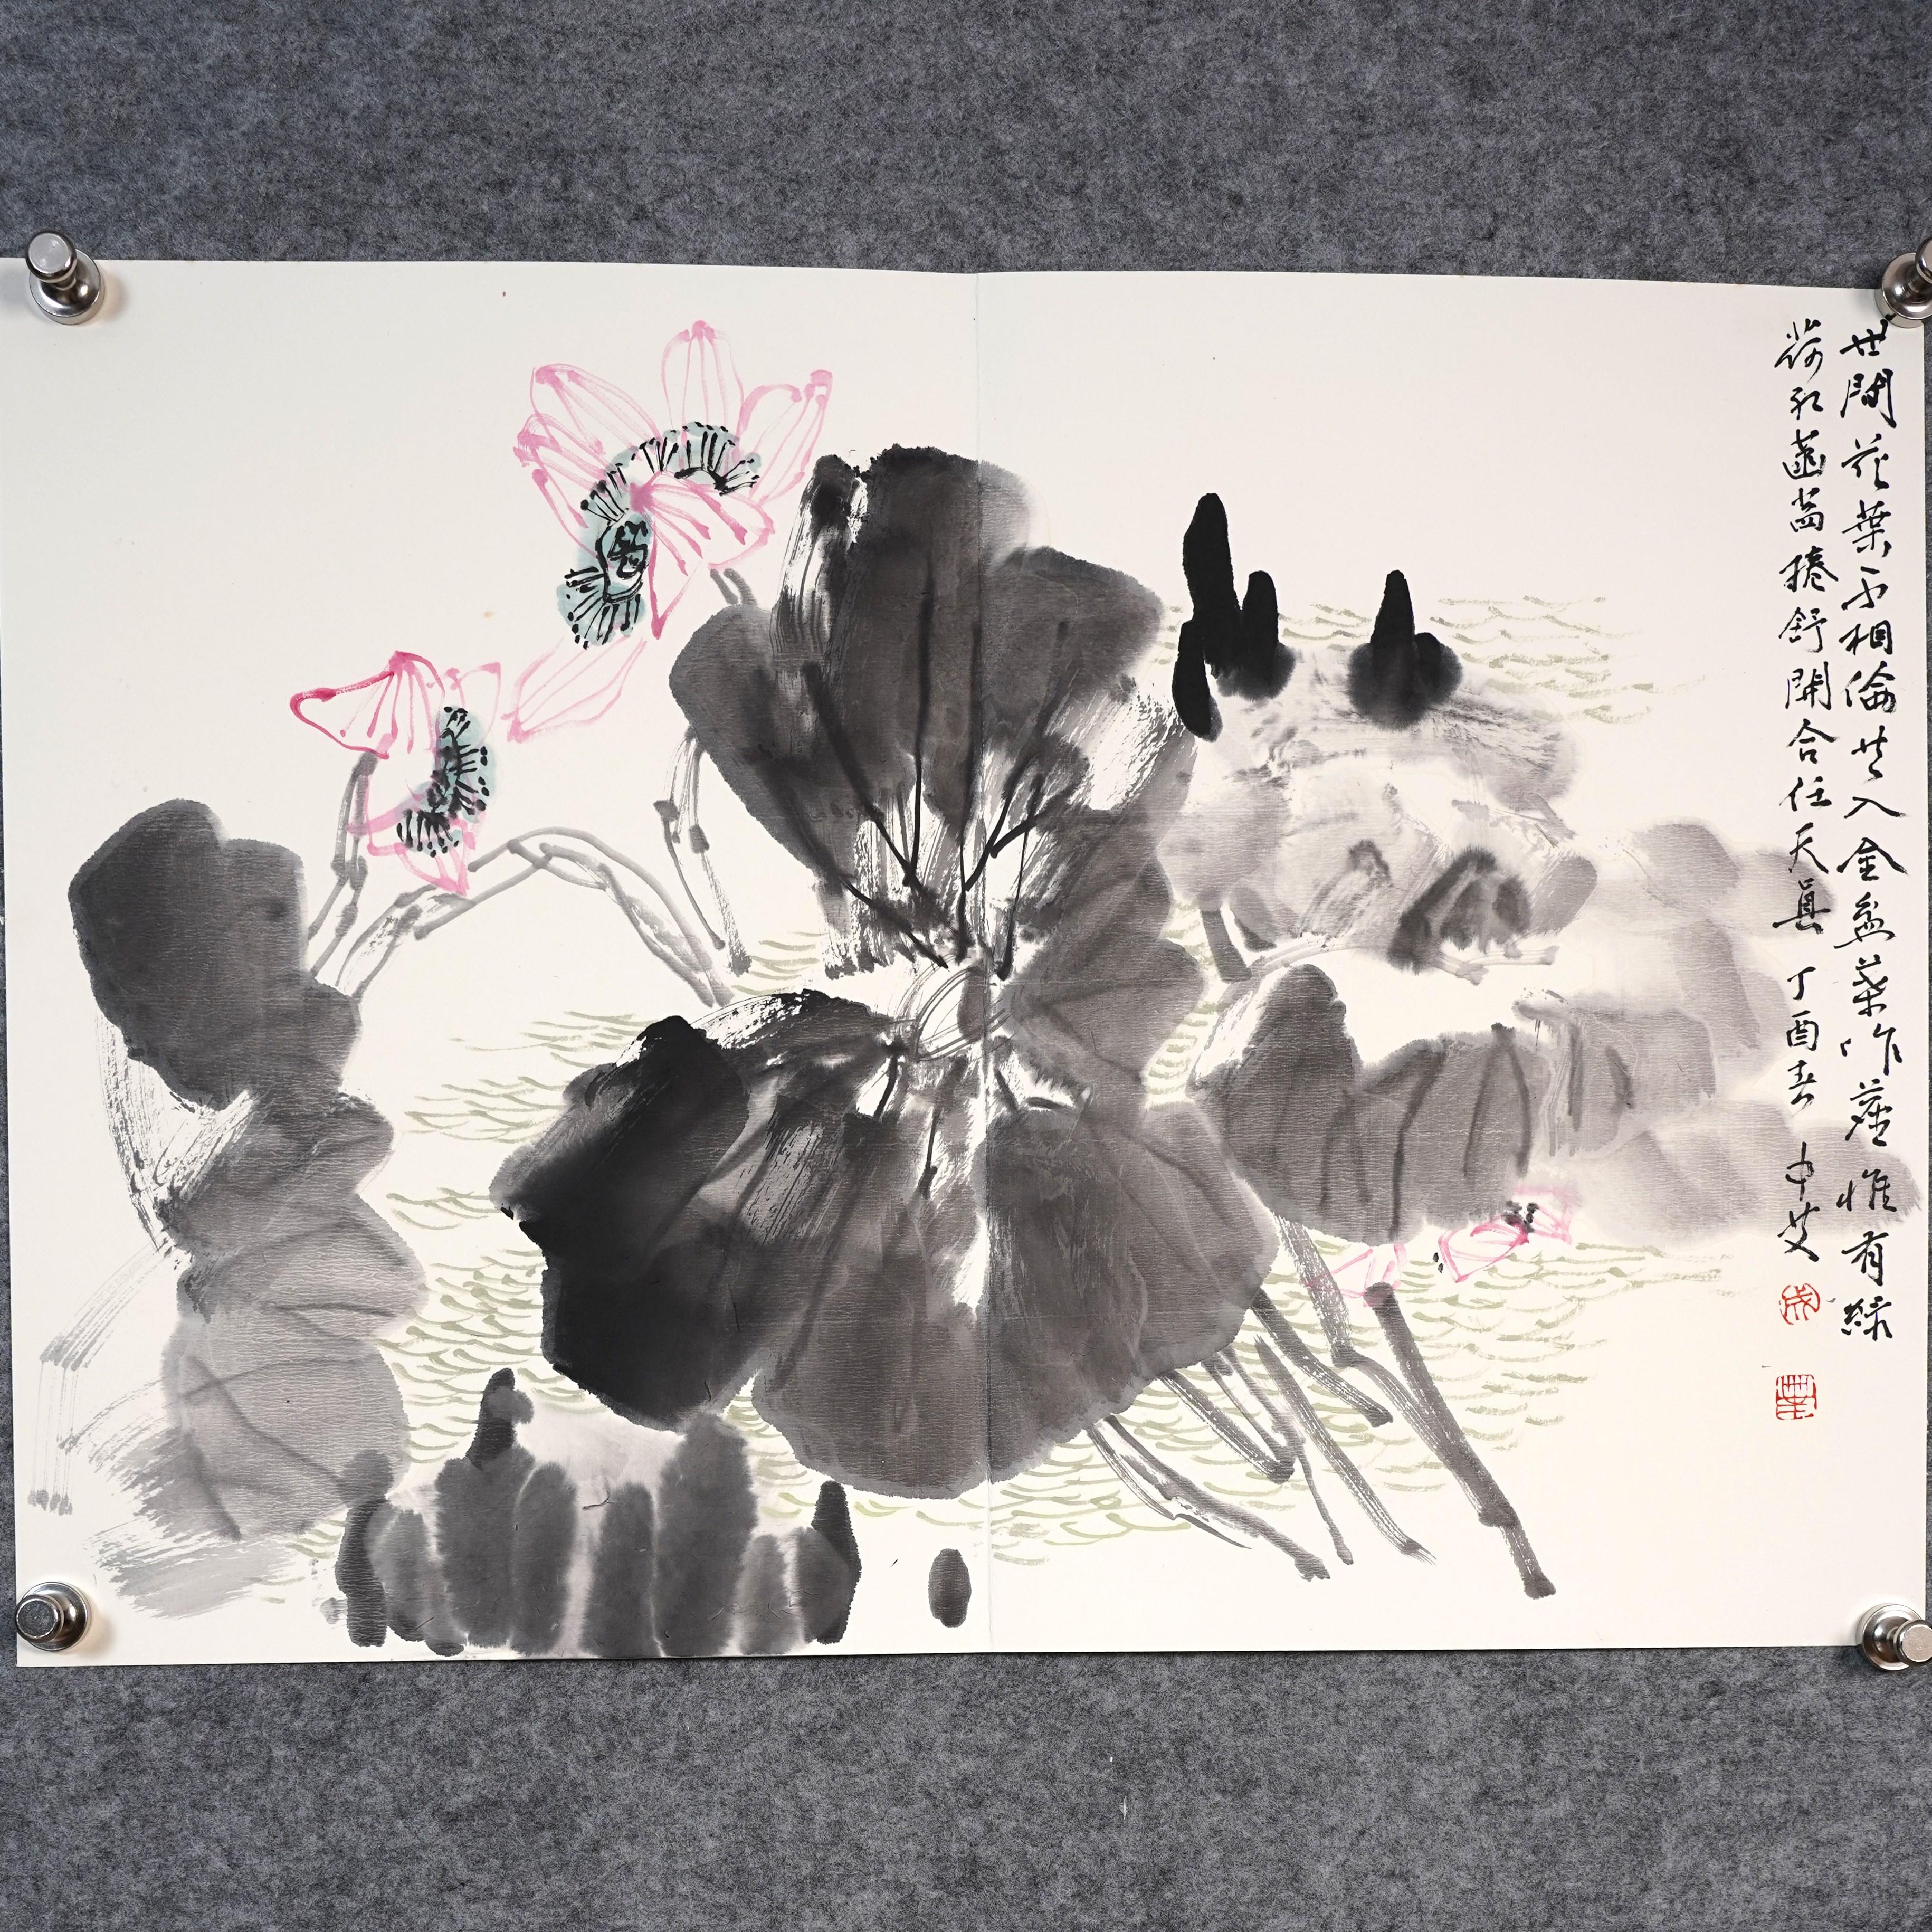 世間花葉不相倫花入金盆葉作塵惟有綠
荷紅菡萏捲舒開合任天真 丁酉春 中艾
成